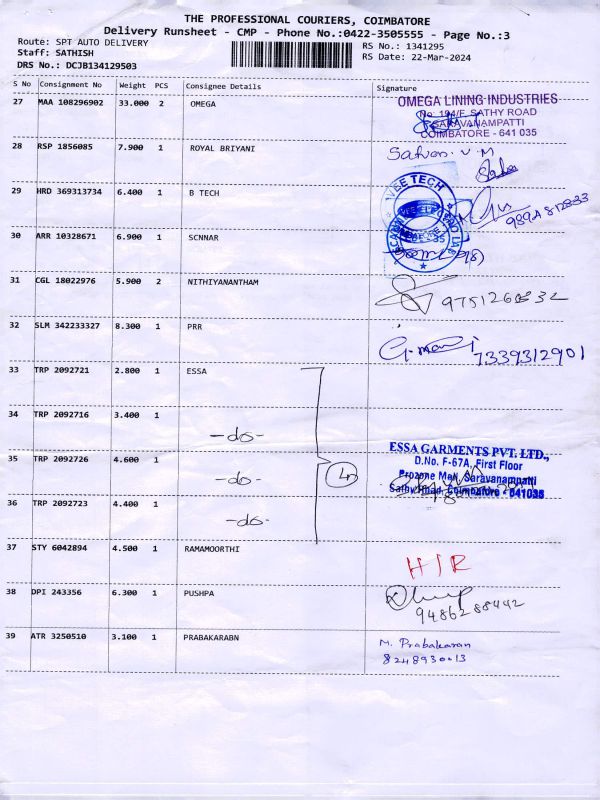 THE PROFESSIONAL COURIERS, COIMBATORE
Delivery Runsheet - CMP - Phone No.:0422-3505555 - Page No.:3
Route: SPT AUTO DELIVERY
RS No.: 1341295
Staff: SATHISH
RS Date: 22-Mar-2024
DRS No.: DCJB134129503
S No Consignment No Weight PCS Consignee Details Signature
27 MAA 108296902 33.000 2 OMEGA
OMEGA LINING INDUSTRIES
No. 194/F, SATHY ROAD
SARAVANAMPATTI
COIMBATORE - 641 035
28 RSP 1856085 7.900 1 ROYAL BRIYANI
V. M
29 HRD 369313734 6.400 1 B TECH
VEE TECH
30 ARR 10328671 6.900 1 SCNNAR
31 CGL 18022976 5.900 2 NITHIYANANTHAM
32 SLM 342233327 8.300 1 PRR
7339312901
33 TRP 2092721 2.800 1 ESSA
34 TRP 2092716 3.400 1 -do-
35 TRP 2092726 4.600 1 -do-
36 TRP 2092723 4.400 1 -do-
ESSA GARMENTS PVT. LTD.,
D.No. F-67A, First Floor
Prozone Mall, Saravanampatti
Sathy Road, Coimbatore - 641035
37 STY 6042894 4.500 1 RAMAMOORTHI
H/R
38 DPI 243356 6.300 1 PUSHPA
9486288442
39 ATR 3250510 3.100 1 PRABAKARABN
M. Prabakaran